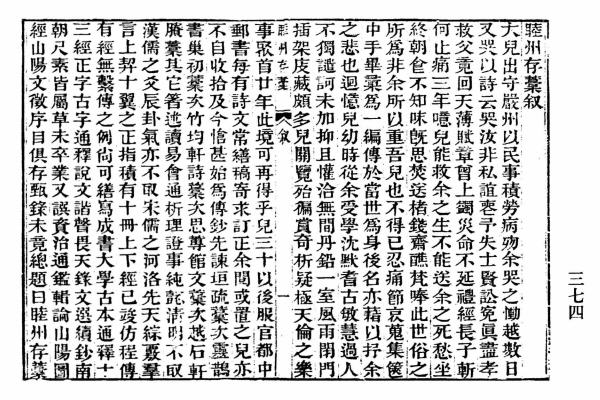 睦州存藁敘
大兒出守嚴州以民事積勞病歿余哭之慟越數日
又哭以詩云哭汝非私誼衷予失士賢訟寃眞盡孝
救父竟回天薄賦章曾上蠲災命不延禮經長子斬
何止痛三年噫兒能救余之生不能送余之死愁坐
終朝食不知味旣思焚送楮錢齋醮梵唪此世俗之
所爲非余所以重吾兒也不得已忍痛節哀蒐集篋
中手畢藁爲一編傳於當世爲身後名亦藉以抒余
之悲也迴憶兒幼時從余受學沈默耆古敏慧過人
不獨譴訶未加抑且懽洽無間丹鉛一室風雨閉門
插架庋藏頗多兒闚覽殆徧賞奇析疑極天倫之樂
睦州存藁 敘 一
事聚首廿年此境可再得乎兒三十以後服官都中
郵書每有詩文常繕稿寄來訂正余閒或置之兒亦
不自收拾及今愴甚始爲傳鈔先諫垣疏藁次靈鵲
書巢初藁次竹均軒詩藁次思尊館文藁次越石軒
賸藁其它箸述讀易會通析理證事純清明不取
漢儒之爻辰卦氣亦不取宋儒之河洛先天綜覈羣
言上契十翼之正指積有十冊上下經已竣仿程傳
有經無繫傳之例尙可繕寫成書大學古本通釋十
三經正字古字通釋說文諧聲畏天錄文選續鈔南
朝尺素皆屬草未卒業又譔資治通鑑輯論山陽圖
經山陽文徵序目俱存甄錄未竟總題曰睦州存藁
三七四